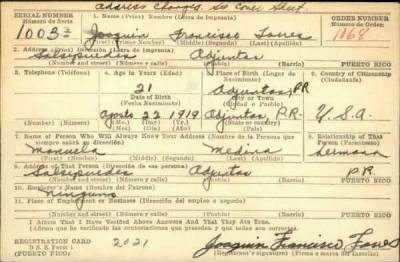 Address Change. See Cover Sheet.
SERIAL NUMBER 1. Name (Print) Nombre (Letra de Imprenta) ORDER NUMBER
Número de Serie Número de Orden
1003 Joaquin Francisco 1868
(First) (Primer Nombre) (Middle) (Segundo) (Last) (Apellido)
2. Address (Print) Dirección (Letra de Imprenta)
Salsipuedes Adjuntas
Number and street) (Número y calle) (Town) (Pueblo) (Barrio) PUERTO RICO
3. Telephone (Teléfono) 4. Age in Years (Edad) 5. Place of Birth (Lugar de Nacimiento) 6. Country of Citizenship (Ciudadanía)
21 Adjuntas, P.R.
Date of Birth Town
(Fecha Nacimiento) (Ciudad o Pueblo)
Agosto 22 1919 Adjuntas P.R. U.S.A.
(Mo.) (Day) (Yr.) (State or country)
(Mes) (Día) (Año) (Estado o País)
7. Name of Person Who Will Always Know Your Address (Nombre de la Persona que siempre sabrá su dirección) 8. Relationship of That Person (Parentesco)
Manuela Medina hermana
(First) (Nombre) (Middle) (Segundo) (Last) (Apellido)
9. Address of That Person (Dirección de esa persona)
Salsipuedes Adjuntas P.R.
(Number and street) (Número y calle) (Town) (Pueblo) (Barrio) PUERTO RICO
10. Employer's Name (Nombre del Patrono)
Ninguno
11. Place of Employment or Business (Dirección del empleo o negocio)
(Number and street) (Número y calle) (Town) (Pueblo) (Barrio) PUERTO RICO
I Affirm That I Have Verified Above Answers And That They Are True.
(Afirmo que he verificado las contestaciones que preceden y que todas son correctas.)
REGISTRATION CARD
D. S. S. Form 1 2021 Joaquin Francisco
(Registrant's Signature) (Firma del Inscrito)